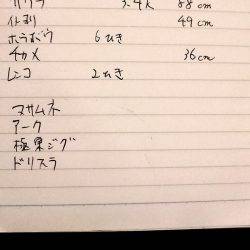 サワラ 3.4k 88cm
イトヨリ 49cm
ホウボウ 6ぴき
チカメ 36cm
レンコ 2ひき
マサムネ
アーク
極巣ジグ
ドリスラ